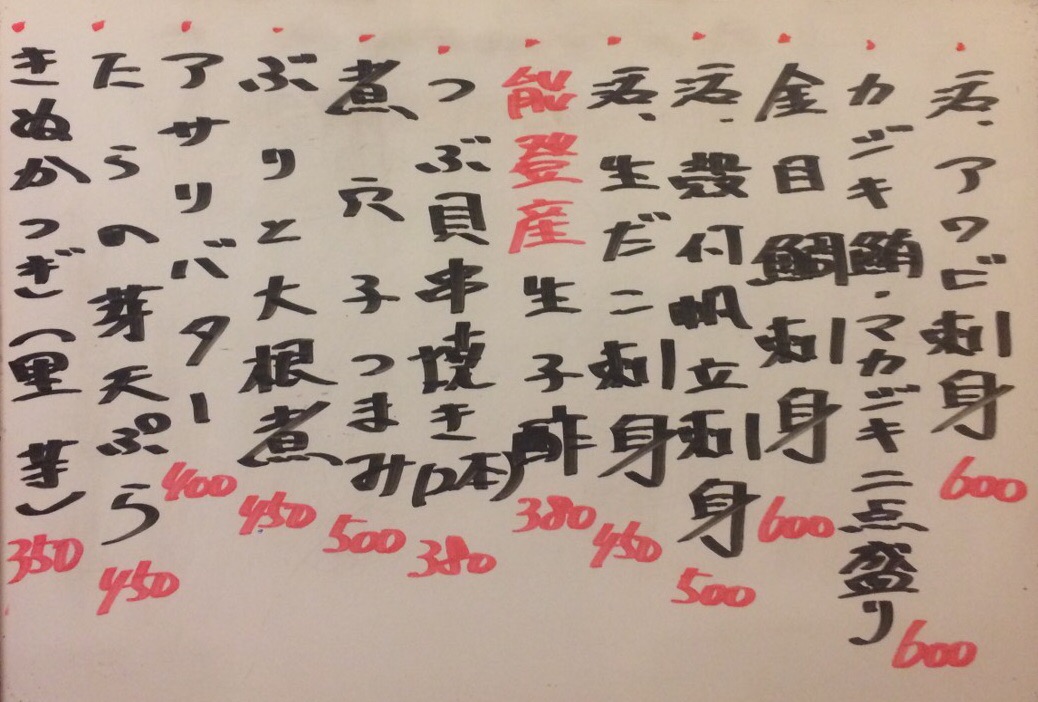 活、アワビ刺身 600
カジキ鮪・マカジキ二点盛り 600
金目鯛刺身 600
活、殻付帆立刺身 500
活、生だこ刺身 450
能登産生子酢 380
つぶ貝串焼き(2本) 380
煮穴子つまみ 500
ぶりと大根煮 450
アサリバター 400
たらの芽天ぷら 450
きぬかつぎ(里芋) 350